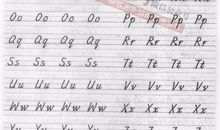 Oo Oo Oo Oo Pp Pp Pp Pp
Qq Qq Qq Qq Rr Rr Rr Rr
Ss Ss Ss Ss Tt Tt Tt Tt
Uu Uu Uu Uu Vv Vv Vv Vv
Ww Ww Ww Ww Xx Xx Xx Xx